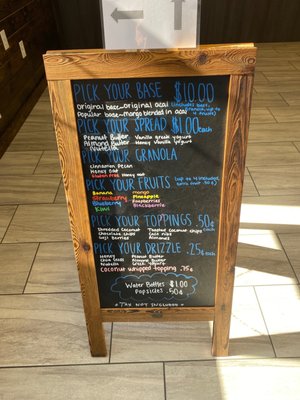 PICK YOUR BASE $10.00
original base~original acai (includes base,
Popular base~mango blended in acai
PICK YOUR SPREAD $1.00 each
Peanut Butter Vanilla greek yogurt
Almond Butter Honey Vanilla yogurt
Nutella
PICK YOUR GRANOLA
Cinnamon Pecan
Honey oat
Gluten Free Honey oat
PICK YOUR FRUITS (up to 4 included,
extra fruit .50¢)
Banana mango
Strawberry Pineapple
Blueberry Raspberries
Kiwi Blackberries
PICK YOUR TOPPINGS .50¢ each
Shredded Coconut Toasted Coconut chips
Chocolate chips Cacao nibs
Goji Berries Almonds
PICK YOUR DRIZZLE .25¢ each
Honey Peanut Butter
Agave Almond Butter
Nutella Greek Yogurt
Coconut whipped topping .75¢
Water Bottles $1.00
Popsicles .50¢
~TAX NOT INCLUDED~